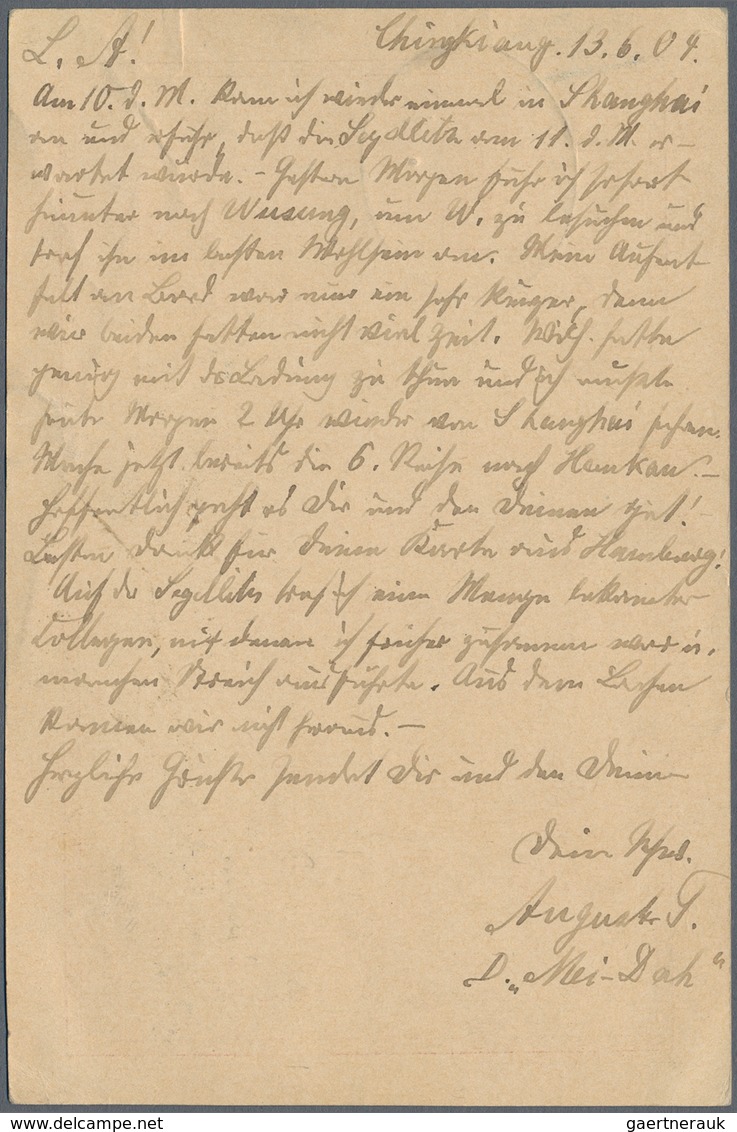 Chingkiang. 13. 6. 04.
L. A!
Am 10. d. M. kam ich wieder einmal in Shanghai
an und erfuhr, daß die Seydlitz am 11. d. M. er-
wartet wurde. – Gestern Morgen fuhr ich sofort
hinunter nach Wusung, um W. zu besuchen und
traf ihn im besten Wohlsein an. Mein Aufent-
halt an Bord war nur ein sehr kurzer, denn
wir beiden hatten nicht viel Zeit. Wilh. hatte
genug mit d. Ladung zu thun und ich mußte
heute Morgen 2 Uhr wieder von Shanghai gehen.
Mache jetzt bereits die 6. Reise nach Hankau. –
Hoffentlich geht es Dir und den Deinen gut! –
Besten Dank für Deine Karte aus Hamburg!
Auf der Seydlitz traf ich eine Menge bekannter
Collegen, mit denen ich früher zusammen war u.
manchen Streich ausführte. Aus dem Lachen
kamen wir nicht heraus. –
Herzliche Grüße sendet Dir und den Deinen
Dein Schw.
August T.
D. „Mei-Dah"
gaertnerauk